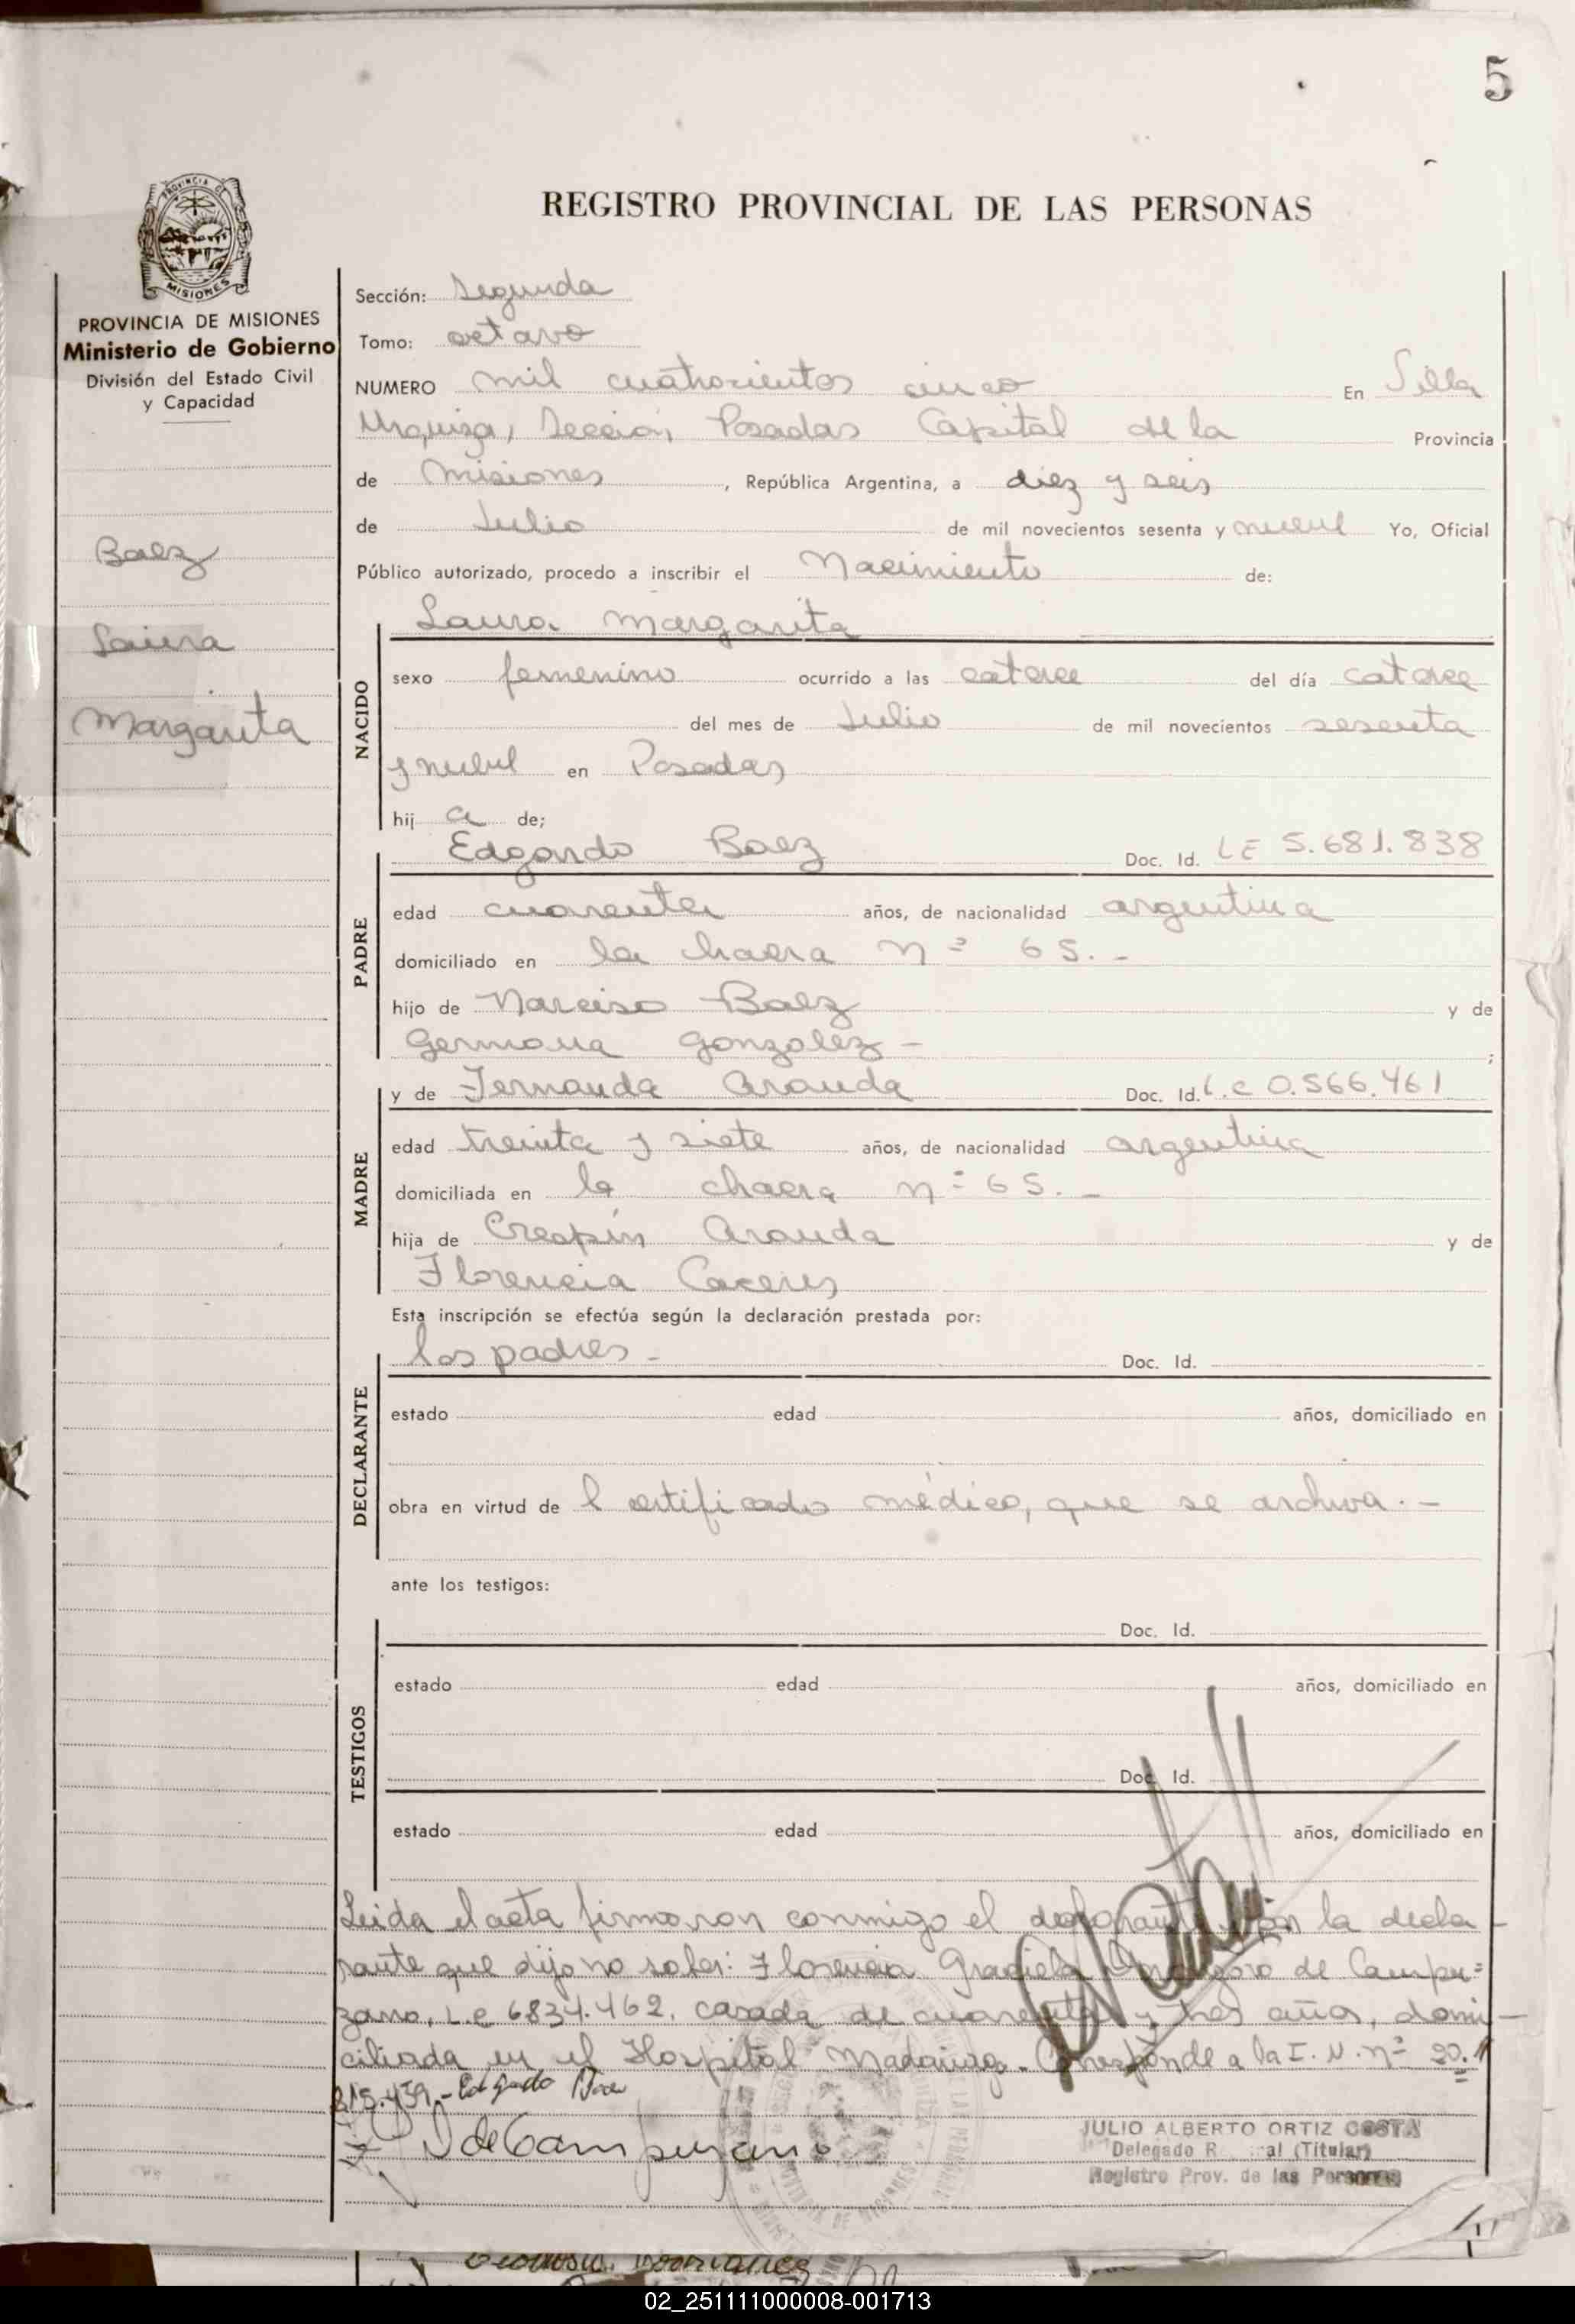 5
PROVINCIA DE MISIONES
PROVINCIA DE MISIONES
Ministerio de Gobierno
División del Estado Civil
y Capacidad
Baez
Laura
Margarita
REGISTRO PROVINCIAL DE LAS PERSONAS
Sección: Segunda
Tomo: octavo
NUMERO mil cuatrocientos cinco En Villa
Urquiza, Sección Posadas Capital de la Provincia
de Misiones, República Argentina, a diez y seis
de Julio de mil novecientos sesenta y nueve Yo, Oficial
Público autorizado, procedo a inscribir el Nacimiento de:
Laura Margarita
NACIDO
sexo femenino ocurrido a las catorce del día catorce
del mes de Julio de mil novecientos sesenta
y nueve en Posadas
hij a de;
Edgardo Baez Doc. Id. LE 5.681.838
PADRE
edad cuarenta años, de nacionalidad argentina
domiciliado en la chacra nº 65.-
hijo de Narciso Baez y de
Germana Gonzalez - ;
y de Fernanda Aranda Doc. Id. L.C 0.566.461
MADRE
edad treinta y siete años, de nacionalidad argentina
domiciliada en la chacra nº 65.-
hija de Crespín Aranda y de
Florencia Caceres
Esta inscripción se efectúa según la declaración prestada por:
los padres - Doc. Id.
DECLARANTE
estado edad años, domiciliado en
obra en virtud de l certificado médico, que se archiva.-
ante los testigos:
Doc. Id.
TESTIGOS
estado edad años, domiciliado en
Doc. Id.
estado edad años, domiciliado en
Leida el acta firmaron conmigo el por la decla
rante que dijo no saber: Florencia Graciela de Campu=
zano, L.C 6834.462, casada de cuarenta y tres años, domi
ciliada en el Hospital Madariaga. Corresponde a la I.N. nº 20.
215.459.- Edgardo Baez
de Campuzano
JULIO ALBERTO ORTIZ COSTA
Delegado (Titular)
Registro Prov. de las Personas
02_251111000008-001713